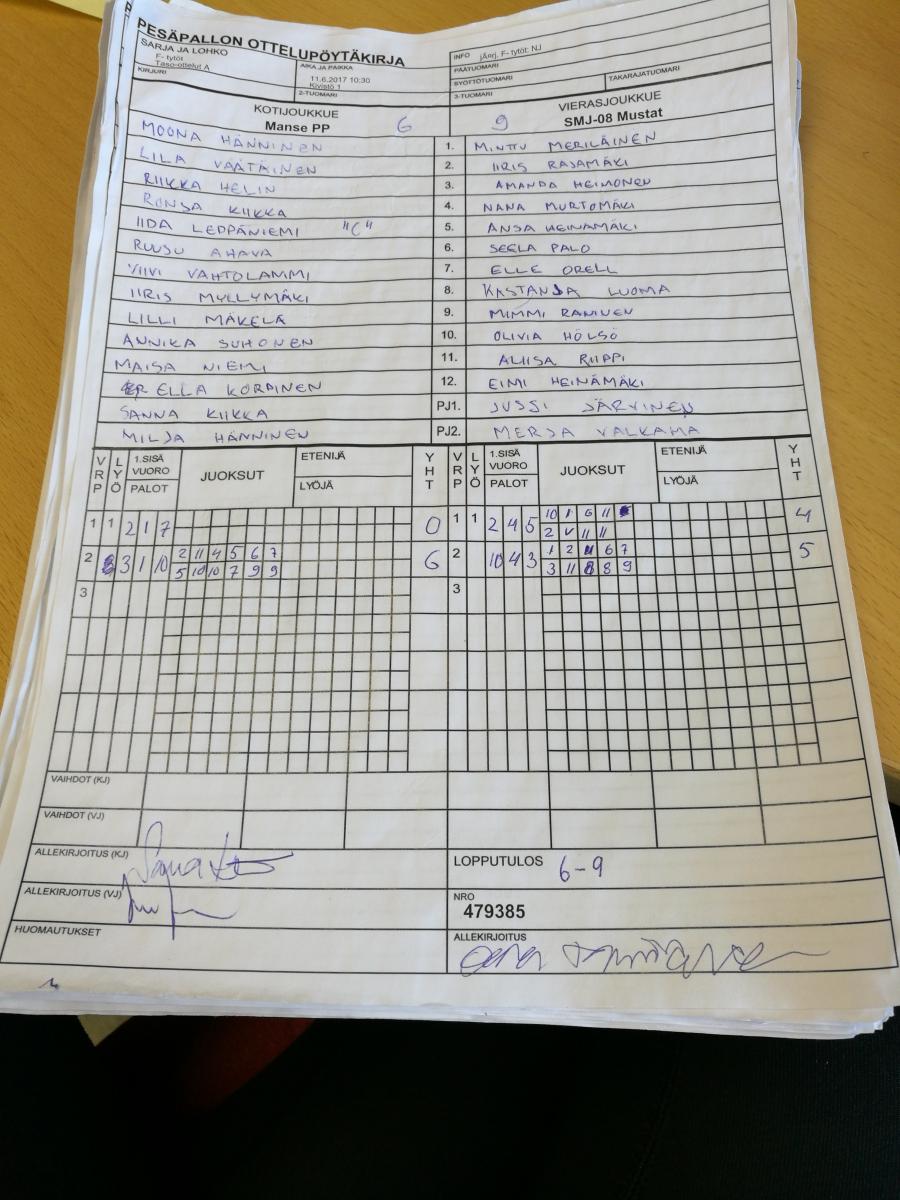 PESÄPALLON OTTELUPÖYTÄKIRJA
SARJA JA LOHKO
F- tytöt
Taso-ottelut A
AIKA JA PAIKKA
11.6.2017 10:30
Kivistö 1
INFO jÄrj. F- tytöt: NJ
PÄÄTUOMARI
SYÖTTÖTUOMARI TAKARAJATUOMARI
KIRJURI 2-TUOMARI 3-TUOMARI
KOTIJOUKKUE VIERASJOUKKUE
Manse PP 6 9 SMJ-08 Mustat
MOONA HÄNNINEN 1. MINTTU MERILÄINEN
LILA VÄÄTÄINEN 2. IIRIS RAJAMÄKI
RIIKKA HELIN 3. AMANDA HEIMONEN
RONJA KIIKKA 4. NANA MURTOMÄKI
IIDA LEPPÄNIEMI "C" 5. ANJA HEINÄMÄKI
RUUSU AHAVA 6. SEELA PALO
VIIVI VAHTOLAMMI 7. ELLE ORELL
IIRIS MYLLYMÄKI 8. KASTANJA LUOMA
LILLI MÄKELÄ 9. MIMMI RANINEN
ANNIKA SUHONEN 10. OLIVIA HÖLSÖ
MAISA NIEMI 11. ALIISA RIIPPI
ELLA KORPINEN 12. EIMI HEINÄMÄKI
SANNA KIIKKA PJ1. JUSSI JÄRVINEN
MILJA HÄNNINEN PJ2. MERJA VALKAMA
VRP LYÖ 1.SISÄ VUORO PALOT JUOKSUT ETENIJÄ LYÖJÄ YHT VRP LYÖ 1.SISÄ VUORO PALOT JUOKSUT ETENIJÄ LYÖJÄ YHT
1 1 2 1 7 0 1 1 2 4 5 10 1 6 11 4
2 V 11 11
2 3 1 10 2 11 4 5 6 7 6 2 10 4 3 1 2 4 6 7 5
5 10 10 7 9 9 3 11 8 8 9
3 3
VAIHDOT (KJ)
VAIHDOT (VJ)
ALLEKIRJOITUS (KJ) LOPPUTULOS 6-9
ALLEKIRJOITUS (VJ) NRO
479385
HUOMAUTUKSET ALLEKIRJOITUS